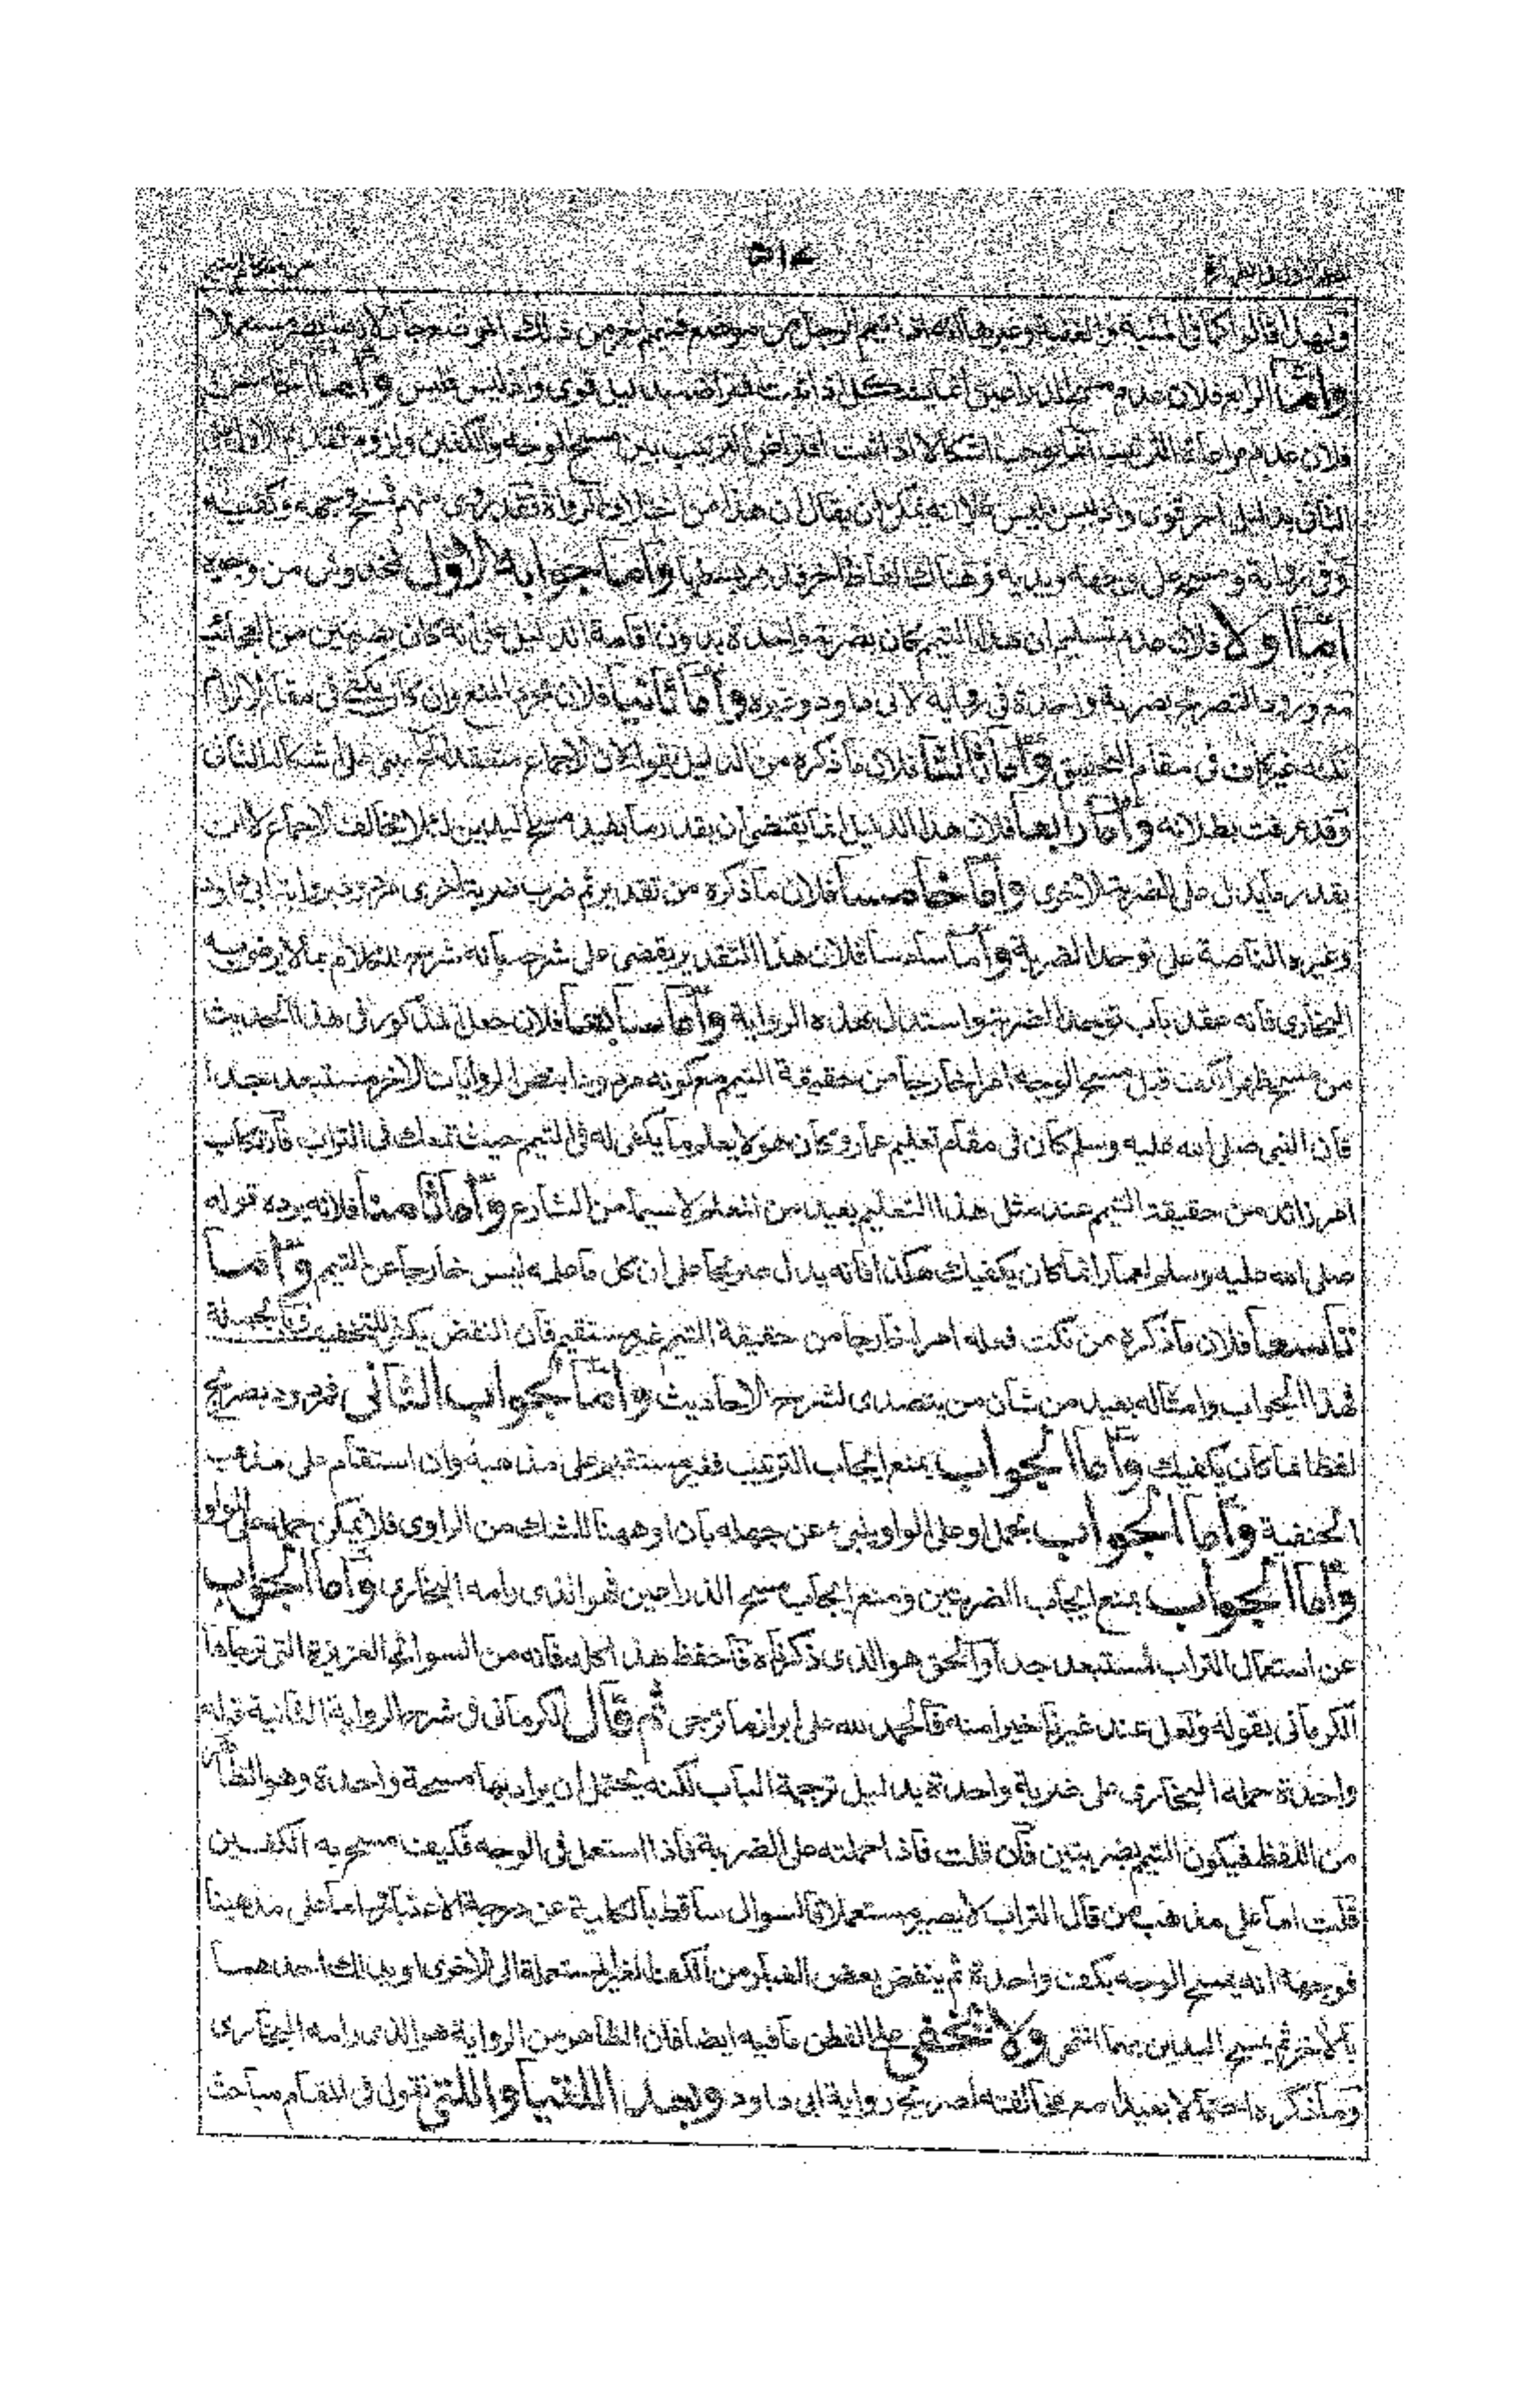 ٥١٤
ولهذا قالوا كما في المنية والغنية وغيرهما انه لو تيمم الرجل من موضع فتيمم اخر من ذلك الموضع جاز لانه لم يصر مستعملا
واما الرابع فلان عدم مسح الذراعين انما يشكل اذا ثبت افتراضه بدليل قوى واذ ليس فليس وأما الخامس
فلان عدم مراعاة الترتيب انما يوجب اشكالا اذا ثبت افتراض الترتيب بين مسح الوجه والكفين ولزوم تقديم الاول على
الثانى بدليل اخر قوى واذ ليس فليس على انه يمكن ان يقال ان هذا من اختلاف الرواة فقد روى مسح وجهه وكفيه
وفي رواية ومسح على وجهه ويديه وهناك الفاظ اخر قد مر بسطها وأما جوابه الاول فمخدوش من وجوه
أما اولا فلان عدم تسليم ان هذا التيمم كان بضربة واحدة بدون اقامة الدليل على انه كان بضربتين من العجائب
مع ورود التصريح بضربة واحدة فى رواية لابى داود وغيره وأما ثانيا فلان مجرد المنع وان كان يكفى فى مقام الالزام
لكنه غير كاف فى مقام التحقيق وأما ثالثا فلان ما ذكره من الدليل بقوله لان الاجماع منعقد الخ مبنى على اشكاله الثانى
وقد عرفت بطلانه وأما رابعا فلان هذا الدليل انما يقتضى ان يقدر ما يفيد مسح اليدين لئلا يخالف الاجماع لا ان
يقدر ما يدل على الضربة الاخرى وأما خامسا فلان ما ذكره من تقدير ثم ضرب ضربة اخرى رواية ابى داود
وغيره الناصة على توحد الضربة وأما سادسا فلان هذا التقدير يقضى على شرحه بانه شرح للكلام بما لا يرضى به
البخارى فانه عقد باب توحد الضربة واستدل بهذه الرواية وأما سابعا فلان جعل المذكور فى هذا الحديث
من مسح ظهر الكف قبل مسح الوجه امرا خارجا من حقيقة التيمم مع كونه مرويا بنص الروايات الاخر مستبعد جدا
فان النبى صلى الله عليه وسلم كان فى مقام تعليم عمار وكان هو لا يعلم ما يكفى له فى التيمم حيث تمعك فى التراب فارتكاب
امر زائد من حقيقة التيمم عند مثل هذا التعليم بعيد من المعلم لا سيما من الشارع وأما ثامنا فلانه يرده قوله
صلى الله عليه وسلم لعمار انما كان يكفيك هكذا فانه يدل صريحا على ان كل ما علمه ليس خارجا عن التيمم وأما
تاسعا فلان ما ذكره من نكت فعله امرا خارجا من حقيقة التيمم غير مستقيم فان النفض يكفى للتخفيف وبالجملة
فهذا الجواب وامثاله بعيد من شان من يتصدى لشرح الاحاديث وأما الجواب الثانى فمردود بصريح
لفظ انما كان يكفيك وأما الجواب بمنع ايجاب الترتيب فغير مستقيم على مذهبه وان استقام على مذهب
الحنفية وأما الجواب بحمل او على الواو فينبئ عن جهله بان او ههنا للشك من الراوى فلا يمكن حمله على الواو
وأما الجواب بمنع ايجاب الضربتين ومنع ايجاب مسح الذراعين فهو الذى رامه البخارى وأما الجواب
عن استعمال التراب فمستبعد جدا والحق هو الذى ذكرناه فاحفظ هذا كله فانه من السوانح العزيزة التى ترجاها
الكرمانى بقوله ولعل عند غيرنا خيرا منه فالحمد لله على ابراز ما ترجى ثم قال الكرمانى فى شرح الرواية الثانية قوله
واحدة حمله البخارى على ضربة واحدة بدليل ترجمة الباب لكنه يحتمل ان يراد بها مسحة واحدة وهو الظاهر
من اللفظ فيكون التيمم بضربتين فان قلت فاذا حملته على الضربة فاذا استعمل فى الوجه فكيف مسح به الكفين
قلت اما على مذهب من قال التراب لا يصير مستعملا فالسوال ساقط بالكلية عن درجة الاعتبار واما على مذهبنا
فوجهه انه يمسح الوجه بكف واحدة ثم ينفض بعض الغبار من الكف الغير المستعملة الى الاخرى او يدلك احدهما
بالاخر ثم يمسح اليدين بهما انتهى ولا يخفى على الفطن ما فيه ايضا فان الظاهر من الرواية هو الذى رامه البخارى
وما ذكره احتمالا بعيدا مع مخالفته لصريح رواية ابى داود وبعد اللتيا والتى نقول فى المقام مباحث